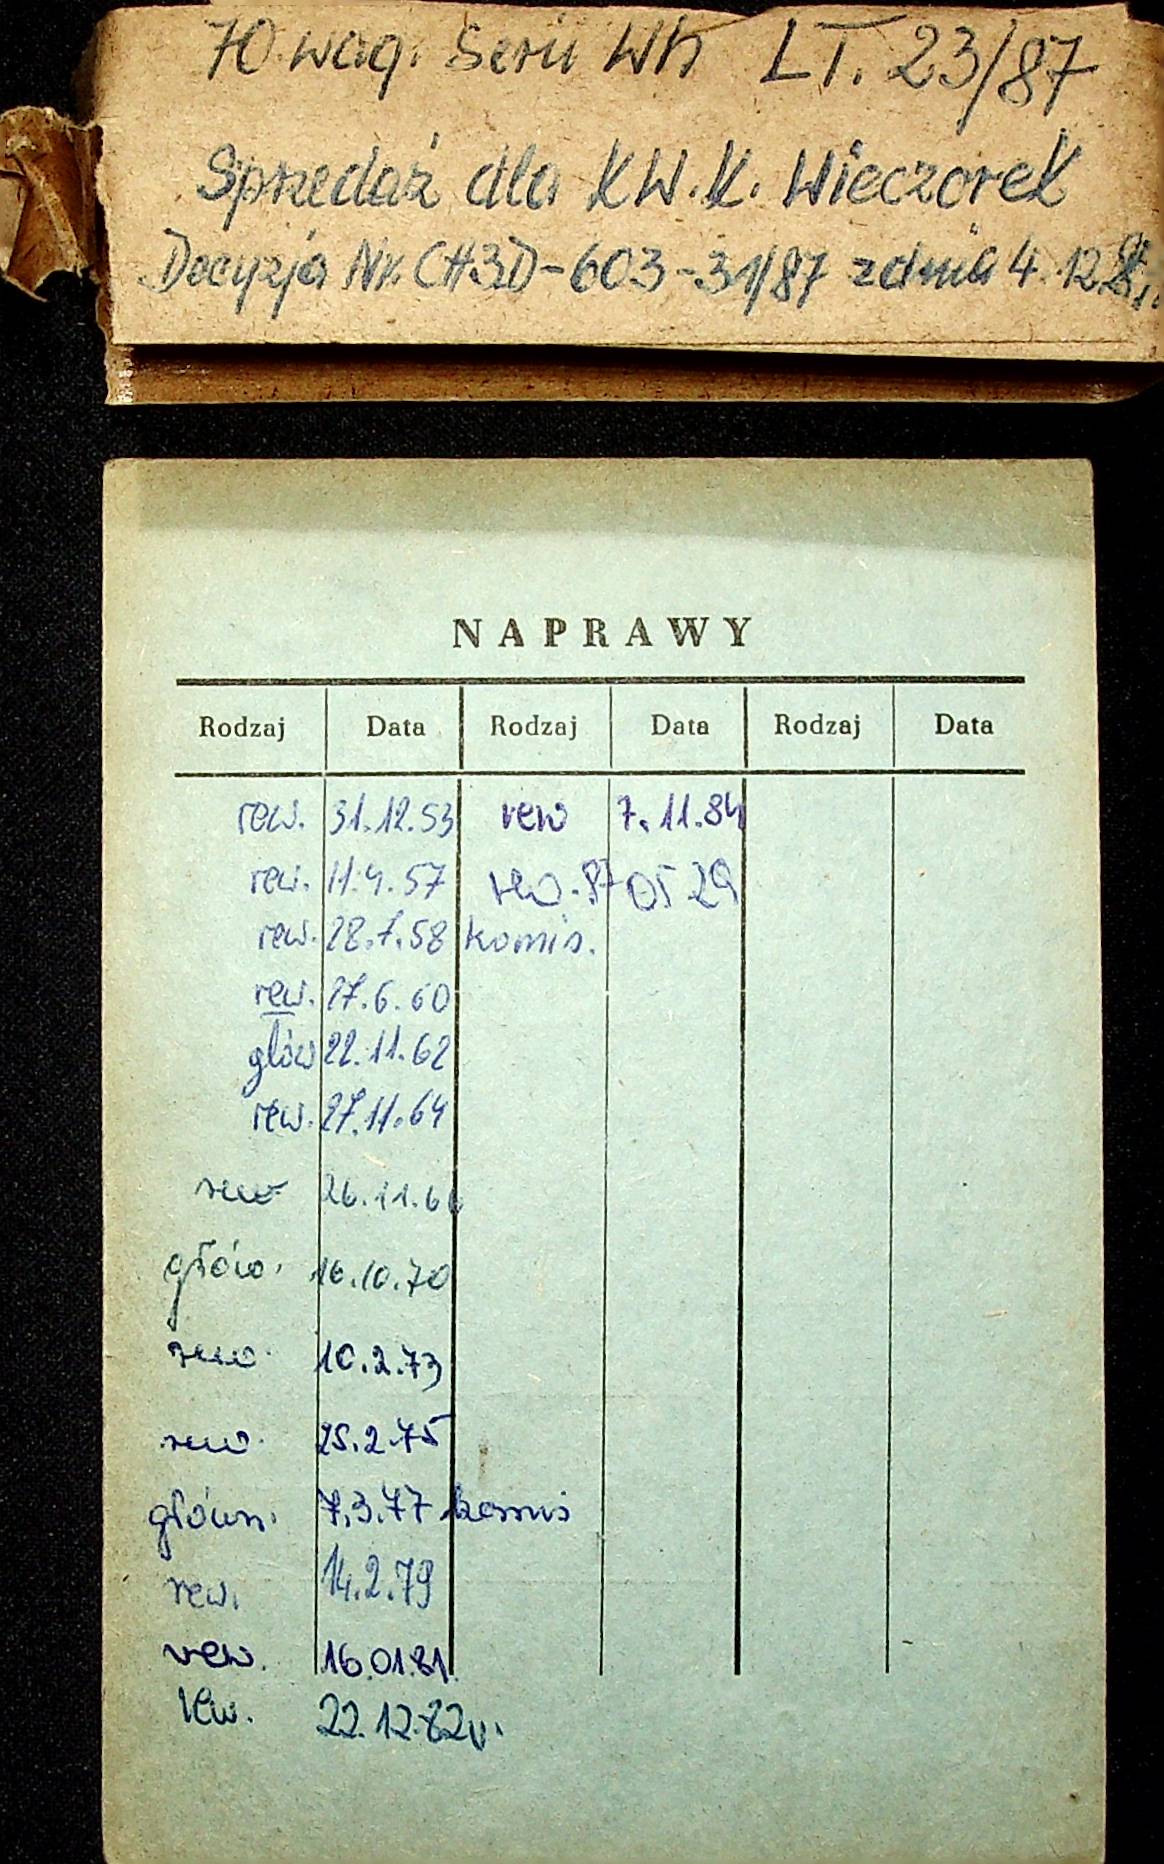 70 wag. Serii Wh LT. 23/87
Sprzedaż dla KW.K. Wieczorek
Decyzja Nr. CH3D-603-31/87 z dnia 4.12.
NAPRAWY
Rodzaj Data Rodzaj Data Rodzaj Data
rew. 31.12.53 rew 7.11.84
rew. 11.4.57 rew. 87 05 29
rew. 28.7.58 komis.
rew. 27.6.60
głów 22.11.62
rew. 27.11.64
rew 26.11.66
głów. 16.10.70
rew. 10.2.73
rew. 25.2.75
główn. 7.3.77 komis
rew. 14.2.79
rew. 16.01.81.
rew. 22.12.82r.